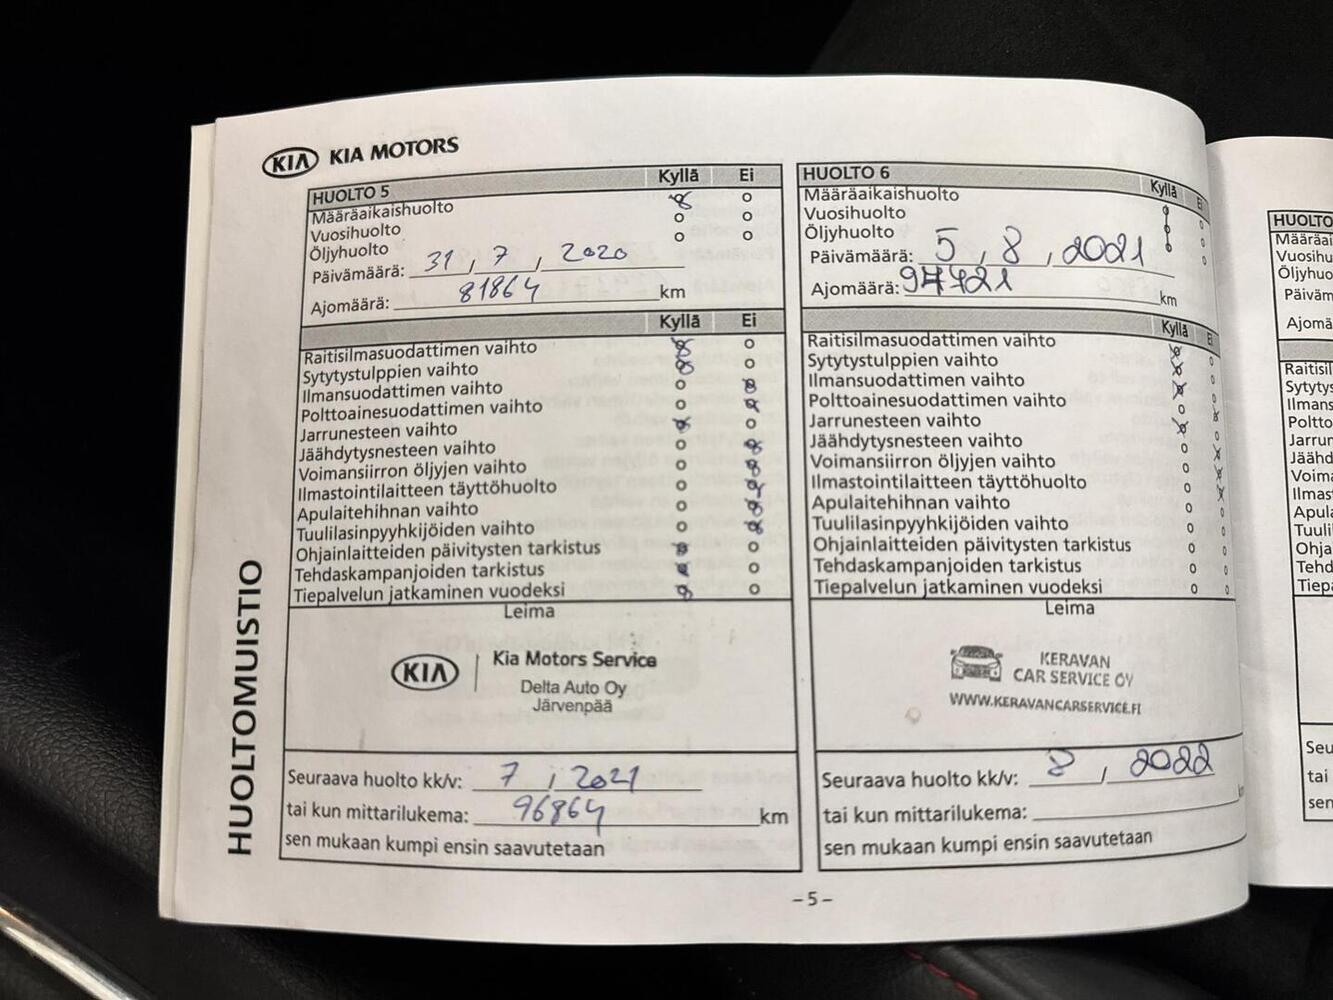 KIA KIA MOTORS
HUOLTOMUISTIO
HUOLTO 5 Kyllä Ei
Määräaikaishuolto
Vuosihuolto
Öljyhuolto
Päivämäärä: 31, 7, 2020
Ajomäärä: 81864 km
Kyllä Ei
Raitisilmasuodattimen vaihto
Sytytystulppien vaihto
Ilmansuodattimen vaihto
Polttoainesuodattimen vaihto
Jarrunesteen vaihto
Jäähdytysnesteen vaihto
Voimansiirron öljyjen vaihto
Ilmastointilaitteen täyttöhuolto
Apulaitehihnan vaihto
Tuulilasinpyyhkijöiden vaihto
Ohjainlaitteiden päivitysten tarkistus
Tehdaskampanjoiden tarkistus
Tiepalvelun jatkaminen vuodeksi
Leima
KIA Kia Motors Service
Delta Auto Oy
Järvenpää
Seuraava huolto kk/v: 7 / 2021
tai kun mittarilukema: 96864 km
sen mukaan kumpi ensin saavutetaan
HUOLTO 6 Kyllä Ei
Määräaikaishuolto
Vuosihuolto
Öljyhuolto
Päivämäärä: 5, 8, 2021
Ajomäärä: 97421 km
Kyllä Ei
Raitisilmasuodattimen vaihto
Sytytystulppien vaihto
Ilmansuodattimen vaihto
Polttoainesuodattimen vaihto
Jarrunesteen vaihto
Jäähdytysnesteen vaihto
Voimansiirron öljyjen vaihto
Ilmastointilaitteen täyttöhuolto
Apulaitehihnan vaihto
Tuulilasinpyyhkijöiden vaihto
Ohjainlaitteiden päivitysten tarkistus
Tehdaskampanjoiden tarkistus
Tiepalvelun jatkaminen vuodeksi
Leima
KERAVAN
CAR SERVICE OY
WWW.KERAVANCARSERVICE.FI
Seuraava huolto kk/v: 8 / 2022
tai kun mittarilukema:
sen mukaan kumpi ensin saavutetaan
- 5 -
HUOLTO
tai